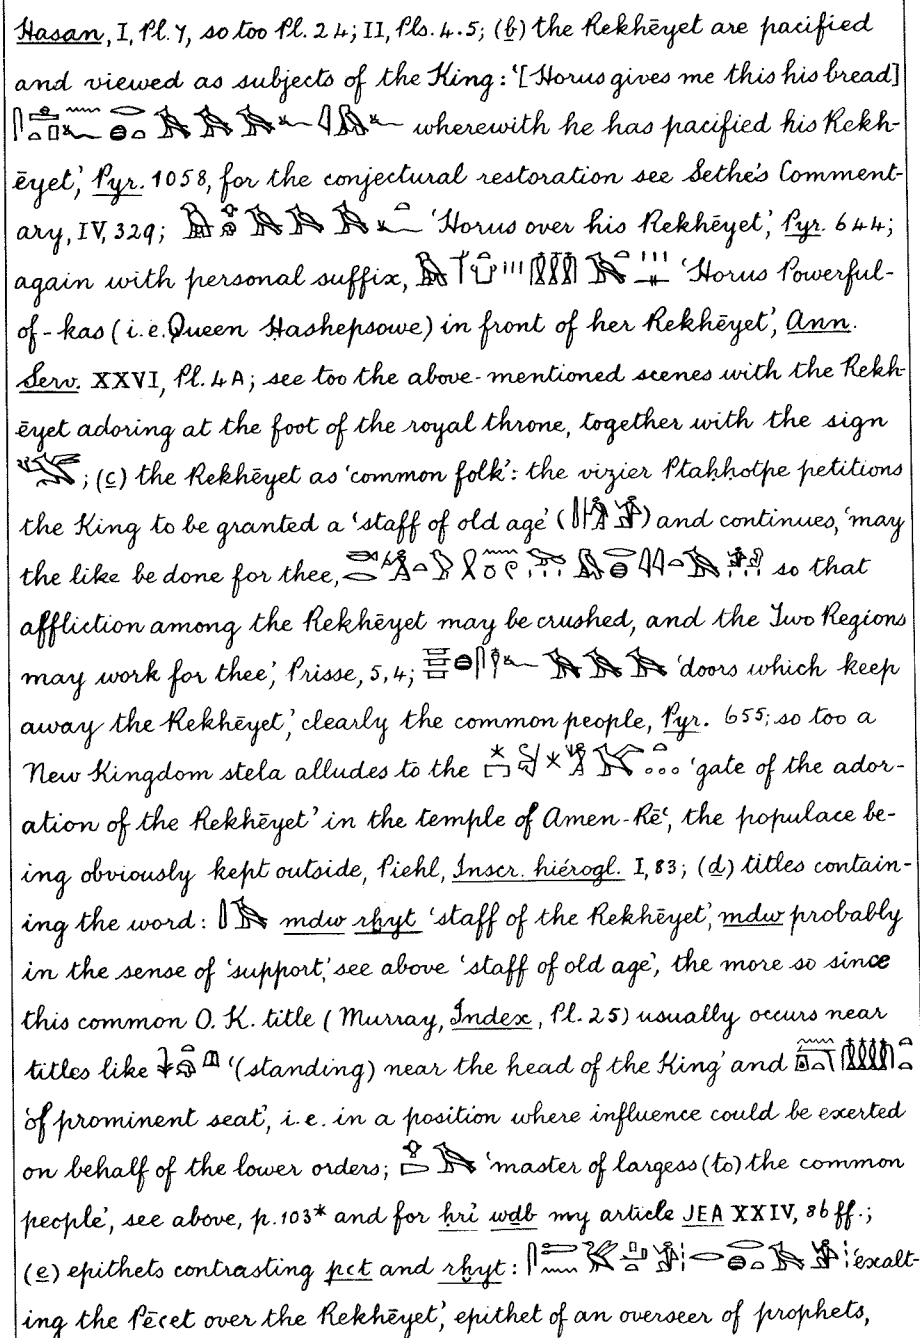 Hasan, I, Pl. 7, so too Pl. 24; II, Pls. 4.5; (b) the Rekhēyet are pacified
and viewed as subjects of the King: '[Horus gives me this his bread]
wherewith he has pacified his Rekh-
ēyet', Pyr. 1058, for the conjectural restoration see Sethe's Comment-
ary, IV, 329; 'Horus over his Rekhēyet', Pyr. 644;
again with personal suffix, 'Horus Powerful-
of-kas (i.e. Queen Ḥashepsowe) in front of her Rekhēyet', Ann.
Serv. XXVI, Pl. 4A; see too the above-mentioned scenes with the Rekh-
ēyet adoring at the foot of the royal throne, together with the sign
; (c) the Rekhēyet as 'common folk': the vizier Ptaḥḥotpe petitions
the King to be granted a 'staff of old age' ( ) and continues, 'may
the like be done for thee, so that
affliction among the Rekhēyet may be crushed, and the Two Regions
may work for thee', Prisse, 5,4; 'doors which keep
away the Rekhēyet,' clearly the common people, Pyr. 655; so too a
New Kingdom stela alludes to the 'gate of the ador-
ation of the Rekhēyet' in the temple of Amen-Rēʿ, the populace be-
ing obviously kept outside, Piehl, Inscr. hiérogl. I, 83; (d) titles contain-
ing the word: mdw rḫyt 'staff of the Rekhēyet', mdw probably
in the sense of 'support,' see above 'staff of old age', the more so since
this common O.K. title (Murray, Index, Pl. 25) usually occurs near
titles like '(standing) near the head of the King' and
'of prominent seat', i.e. in a position where influence could be exerted
on behalf of the lower orders; 'master of largess (to) the common
people', see above, p. 103* and for ḥri wḏb my article JEA XXIV, 86 ff.;
(e) epithets contrasting pꜥt and rḫyt: 'exalt-
ing the Pēꜥet over the Rekhēyet', epithet of an overseer of prophets,